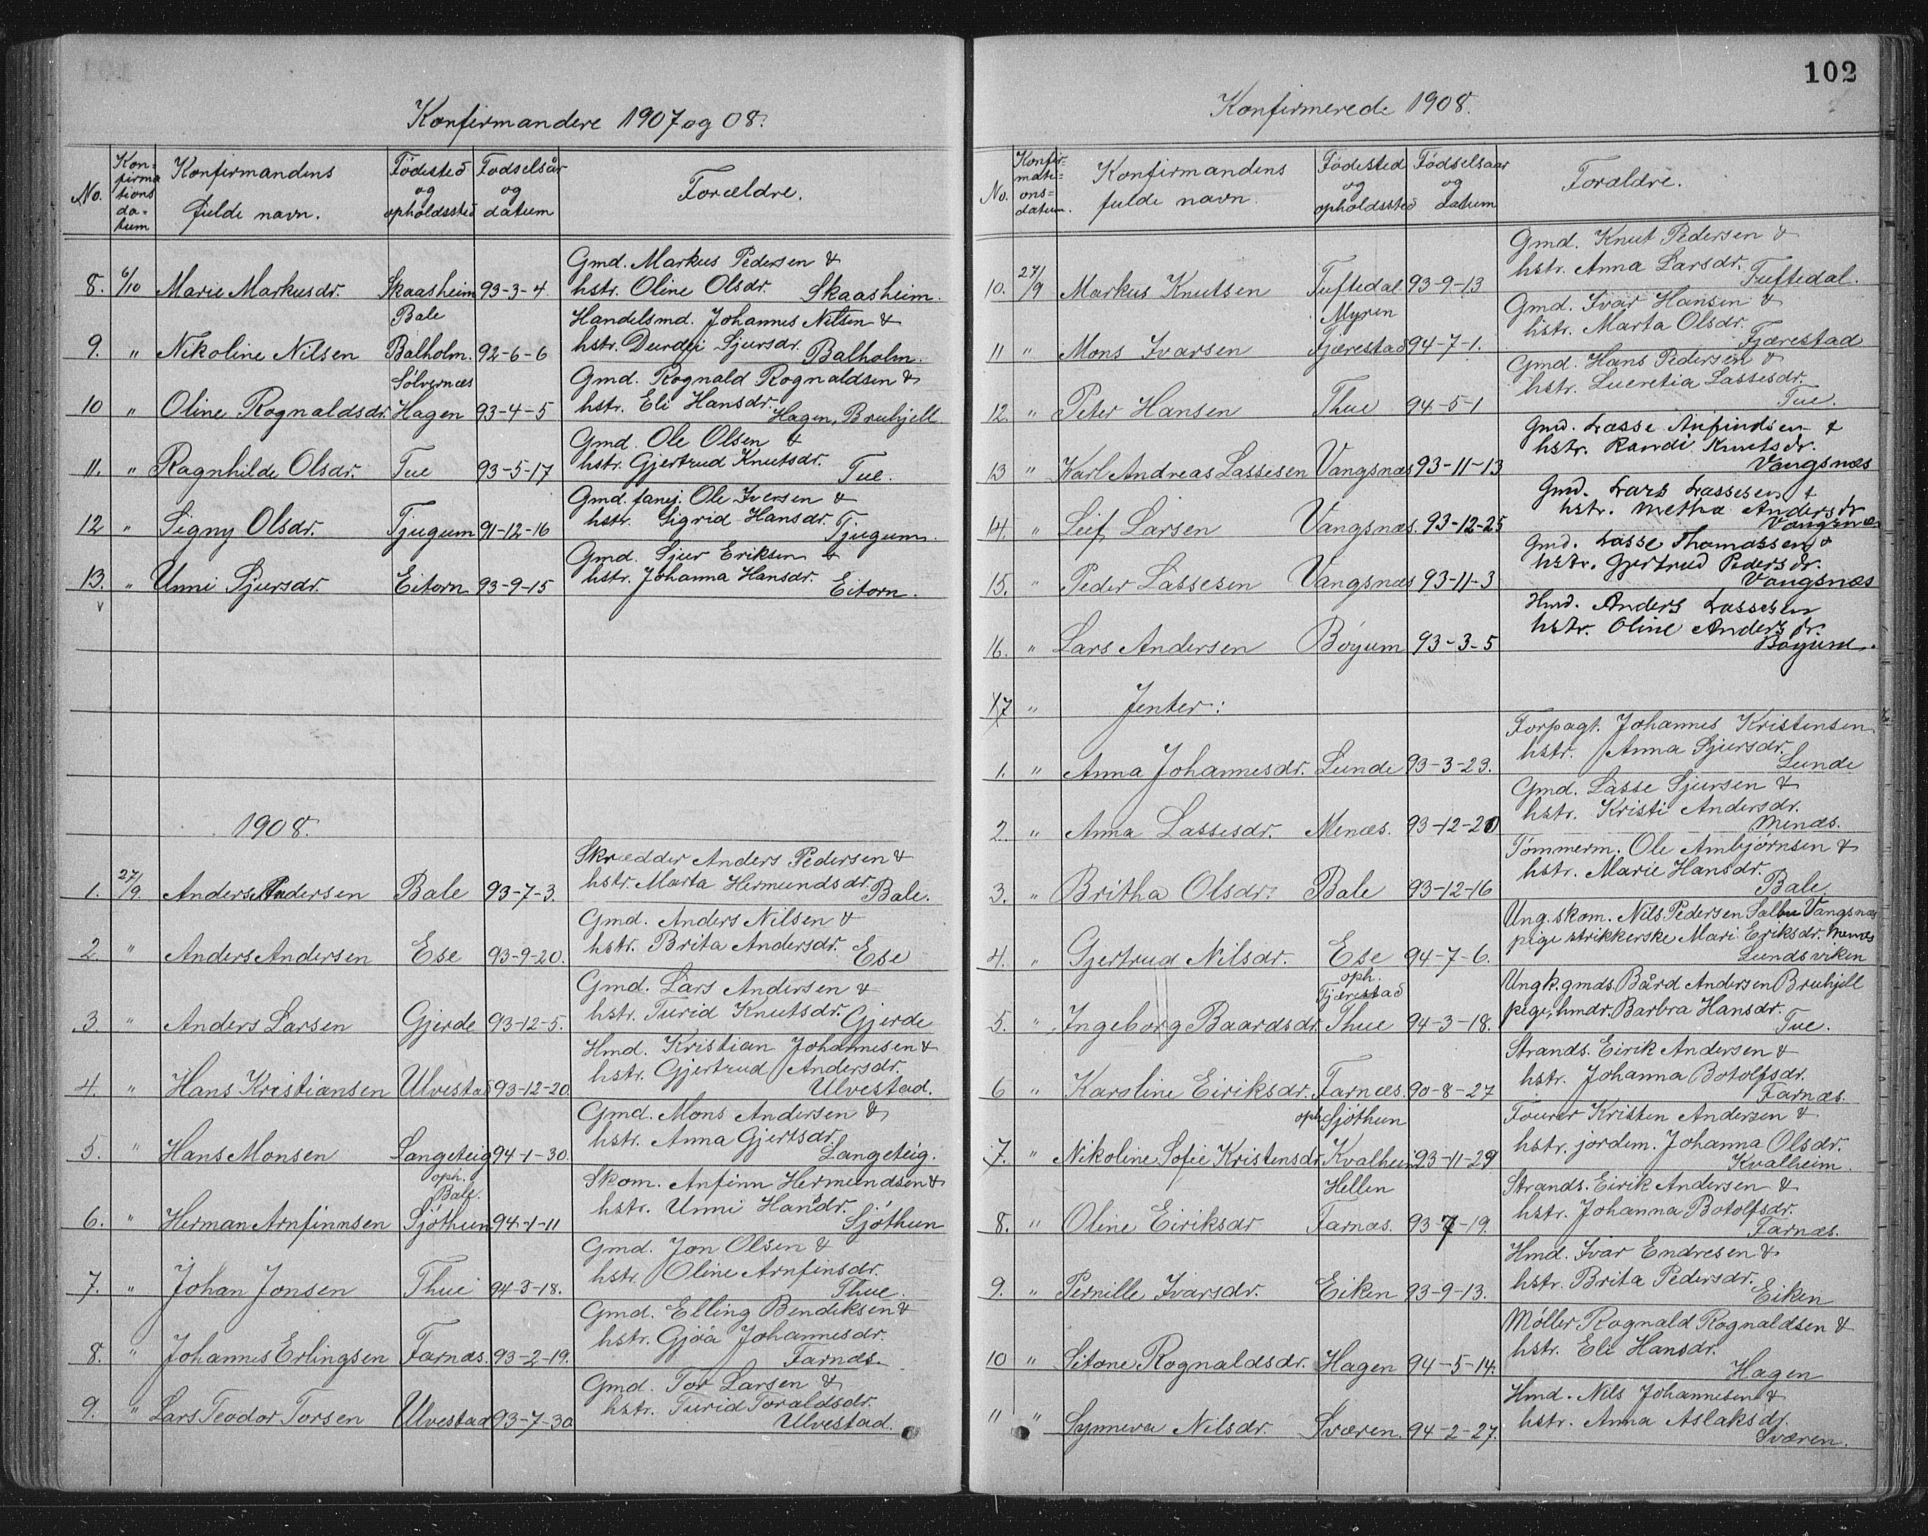 Konfirmandere 1907 og 08.
No. Kon-firma-tions da-tum Konfirmandens fulde navn. Födested og opholdssted Fodselsår og datum Forældre.
Gmd. Markus Pedersen &
8. 6/10 Marie Markusdr. Skaasheim 93-3-4 hstr. Oline Olsdr. Skaasheim.
Bale Handelsmd. Johannes Nilsen &
9. " Nikoline Nilsen Balholm. 92-6-6 hstr. Sjursdr. Balholm.
Sölvernæs Gmd. Rognald Rognaldsen &
10 " Oline Rognaldsdr. Hagen 93-4-5 hstr. Eli Hansdr. Hagen, Bruhjell.
Gmd. Ole Olsen &
11. " Ragnhilde Olsdr. Tue 93-5-17 hstr. Gjertrud Knutsdr. Tue.
Gmd. Ole Iversen &
12 " Signy Olsdr. Tjugum 91-12-16 hstr. Sigrid Hansdr. Tjugum.
Gmd. Sjur Eriksen &
13. " Unni Sjursdr. Eitorn 93-9-15 hstr. Johanna Hansdr. Eitorn.
1908.
Skrædder Anders Pedersen &
1. 27/9 Anders Pedersen Bale 93-7-3. hstr. Marta Hermundsdr. Bale.
Gmd. Anders Nilsen &
2. " Anders Andersen Ese 93-9-20. hstr. Brita Andersdr. Ese
Gmd. Lars Andersen &
3. " Anders Larsen Gjerde 93-12-5. hstr. Turid Knutsdr. Gjerde
Hmd. Kristian Johannesen &
hstr. Gjertrud Andersdr.
4. " Hans Kristiansen Ulvestad 93-12-20. Ulvestad.
Gmd. Mons Andersen &
hstr. Anna Gjertsdr.
5. " Hans Monsen Langeteig 94-1-30. Langeteig.
oph. Bale. Skom. Anfinn Hermundsen &
hstr. Unni Hansdr.
6. " Herman Arnfinnsen Sjöthun 94-1-11 Sjöthun
Gmd. Jon Olsen &
hstr. Oline Arnfinsdr.
7. " Johan Jonsen Thue 94-3-18. Thue.
Gmd. Elling Bendiksen &
hstr. Gjöa Johannesdr.
8. " Johannes Erlingsen Farnæs. 93-2-19. Farnæs.
Gmd. Tor Larsen &
hstr. Turid Toraldsdr.
9. " Lars Teodor Torsen Ulvestad 93-7-30 Ulvestad.
102
Konfirmerede 1908.
No. Konfir-mati-ons-datum. Konfirmandens fulde navn. Födested og opholdssted Födselsaar og datum Forældre.
Gmd. Knut Pedersen &
hstr. Anna Larsdr.
10. 27/9 Markus Knutsen Tuftedal 93-9-13 Tuftedal.
Myren Gmd. Ivar Hansen &
hstr. Marta Olsdr.
11 " Mons Ivarsen Fjærestad 94-7-1. Fjærestad
Gmd. Hans Pedersen &
hstr. Lucretia Lassesdr.
12. " Peter Hansen Thue 94-5-1 Tue.
Gmd. Lasse Anfindsen &
hstr. Randi Knutsdr.
13 " Karl Andreas Lassesen Vangsnæs 93-11-13 Vangsnæs
Gmd. Lars Lassesen &
hstr. Metha Andersdr
14. " Leif Larsen Vangsnæs. 93-12-25 Vangsnæs
Gmd. Lasse Thomassen &
hstr. Gjertrud Pedersdr.
15. " Peder Lassesen Vangsnæs 93-11-3 Vangsnæs
Hmd. Anders Lassesen
hstr. Oline Andersdr.
16. " Lars Andersen Böyum 93-3-5 Böyum.
17 " Jenter:
Forpagt. Johannes Kristensen
hstr. Anna Sjursdr.
1. " Anna Johannesdr. Lunde 93-3-23. Lunde
Gmd. Lasse Sjursen &
hstr. Kristi Andersdr.
2. " Anna Lassesdr. Menæs. 93-12-20 Menæs.
Tömmerm. Ole Ambjörnsen &
hstr. Marie Hansdr.
3. " Britha Olsdr. Bale 93-12-16 Bale.
Ung. skom. Nils Pedersen Salbu Vangsnæs
pige strikkerske Mari Eriksdr. Menæs
4. " Gjertrud Nilsdr. Ese 94-7-6. Lundsviken
oph. Fjærestad Ungk. gmds. Bård Andersen Bruhjell
5. " Ingeborg Baardsdr. Thue 94-3-18. pige, hmdr. Barbra Hansdr. Tue.
Strands. Eirik Andersen &
hstr. Johanna Botolfsdr.
6 " Karoline Eiriksdr. Farnæs. 90-8-27 Farnæs.
oph. Sjöthun Kristen Andersen &
hstr. jordem. Johanna Olsdr.
7. " Nikoline Sofie Kristensdr. Kvalheim 93-11-29 Kvalheim.
Hellen Strands. Eirik Andersen &
hstr. Johanna Botolfsdr.
8. " Oline Eiriksdr Farnæs. 93-7-19. Farnæs.
Hmd. Ivar Endresen &
hstr. Brita Pedersdr.
9. " Pernille Ivarsdr. Eiken 93-9-13. Eiken
Møller Rognald Rognaldsen &
hstr. Eli Hansdr.
10 " Rognaldsdr. Hagen 94-5-14. Hagen
Hmd. Nils Johannesen &
hstr. Anna Aslaksdr.
11 " Synneva Nilsdr. Sværen. 94-2-27. Sværen.